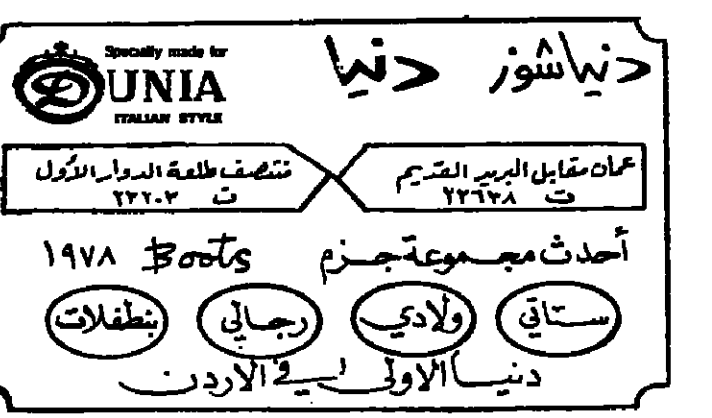 دنيا شوز دنيا
Specially made for
DUNIA
ITALIAN STYLE
عمان مقابل البريد القديم
ت ٢٣٦٣٨
منتصف طلعة الدوار الأول
ت ٢٣٢٠٣
أحدث مجموعة جزم Boots ١٩٧٨
ستاتي ولادي رجالي بنطفلات
دنيا الاولى في الاردن